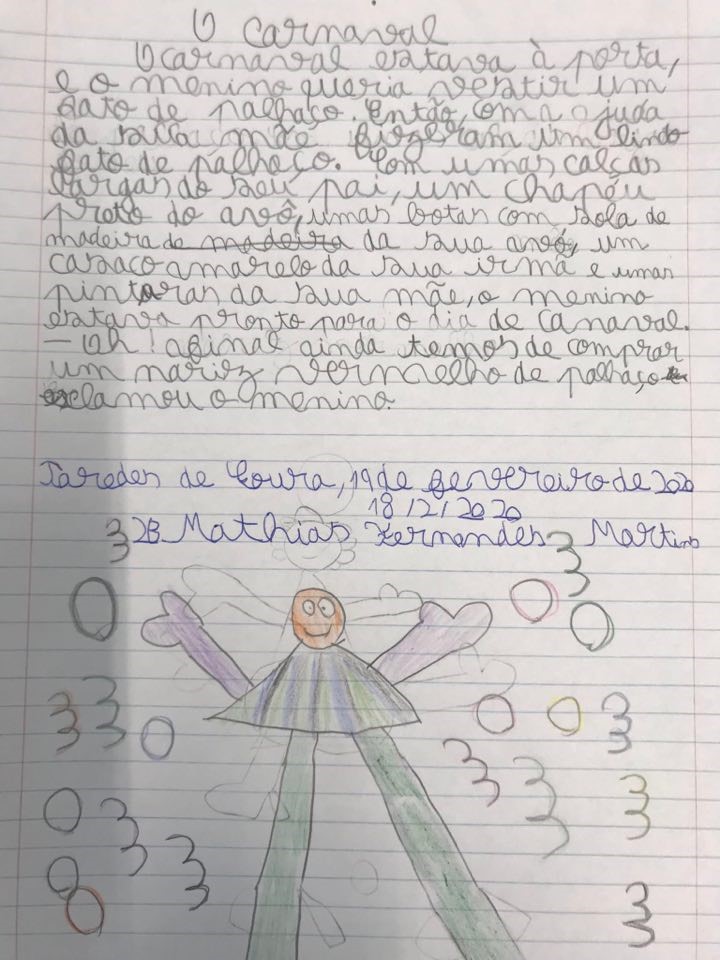 O Carnaval
O carnaval estava à porta,
e o menino queria vestir um
fato de palhaço. Então, com a ajuda
da sua mãe fizeram um lindo
fato de palhaço. Com umas calças
largas do seu pai, um chapéu
preto do avô, umas botas com sola de
madeira de madeira da sua avó, um
casaco amarelo da sua irmã e umas
pinturas da sua mãe, o menino
estava pronto para o dia de canaval.
— Ah! afinal ainda temos de comprar
um nariz vermelho de palhaço
exclamou o menino.
Paredes de Coura, 19 de fevereiro de 2020
18/2/2020
2B Mathias Fernandes Martins